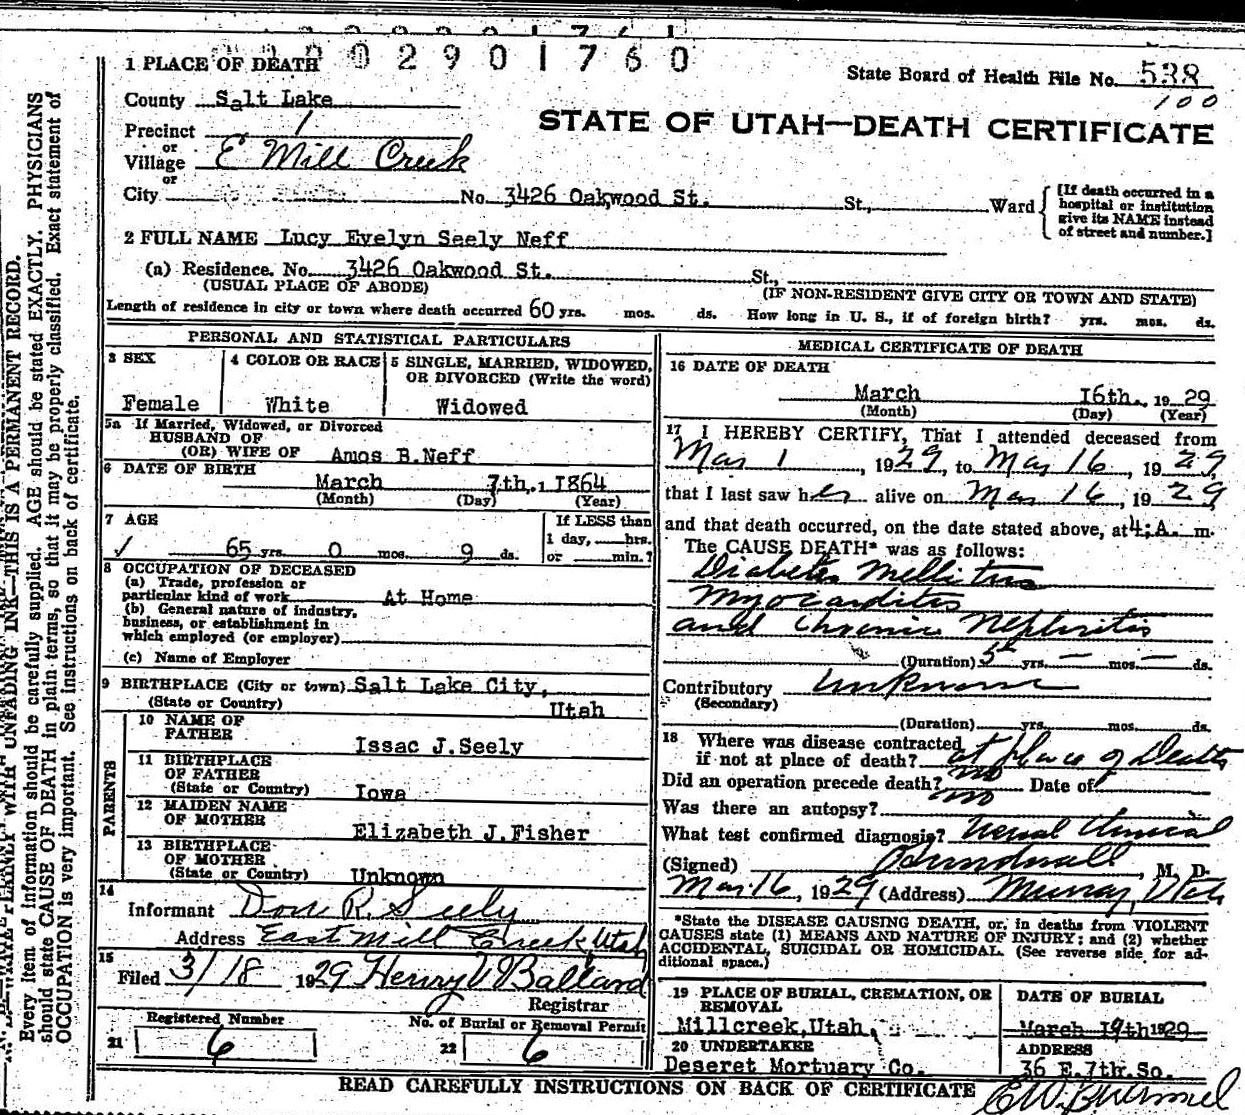 0 0 2 9 0 1 7 6 0
1 PLACE OF DEATH
State Board of Health File No. 538
100
County Salt Lake
STATE OF UTAH—DEATH CERTIFICATE
Precinct 1
or
Village E Mill Creek
or
City No. 3426 Oakwood St. St., Ward
[If death occurred in a
hospital or institution
give its NAME instead
of street and number.]
2 FULL NAME Lucy Evelyn Seely Neff
(a) Residence. No. 3426 Oakwood St. St.,
(USUAL PLACE OF ABODE) (IF NON-RESIDENT GIVE CITY OR TOWN AND STATE)
Length of residence in city or town where death occurred 60 yrs. mos. ds. How long in U. S., if of foreign birth? yrs. mos. ds.
PERSONAL AND STATISTICAL PARTICULARS
3 SEX 4 COLOR OR RACE 5 SINGLE, MARRIED, WIDOWED,
OR DIVORCED (Write the word)
Female White Widowed
5a If Married, Widowed, or Divorced
HUSBAND OF
(OR) WIFE OF Amos B.Neff
6 DATE OF BIRTH
March 7th, 1 1864
(Month) (Day) (Year)
7 AGE If LESS than
1 day, hrs.
✓ 65 yrs. 0 mos. 9 ds. or min.?
8 OCCUPATION OF DECEASED
(a) Trade, profession or
particular kind of work At Home
(b) General nature of industry,
business, or establishment in
which employed (or employer)
(c) Name of Employer
9 BIRTHPLACE (City or town) Salt Lake City,
(State or Country) Utah
PARENTS
10 NAME OF
FATHER Issac J.Seely
11 BIRTHPLACE
OF FATHER
(State or Country) Iowa
12 MAIDEN NAME
OF MOTHER Elizabeth J.Fisher
13 BIRTHPLACE
OF MOTHER
(State or Country) Unknown
14
Informant Don R. Seely
Address East Mill Creek Utah
15
Filed 3/18 1929 Henry V Ballard
Registrar
Registered Number No. of Burial or Removal Permit
21 6 22 6
MEDICAL CERTIFICATE OF DEATH
16 DATE OF DEATH
March 16th. 1929
(Month) (Day) (Year)
17 I HEREBY CERTIFY, That I attended deceased from
Mar 1, 1929, to Mar 16, 1929,
that I last saw her alive on Mar 16, 1929
and that death occurred, on the date stated above, at 4:A. m.
The CAUSE DEATH* was as follows:
Diabetes Mellitus
Myocarditis
and Chronic Nephritis
(Duration) 5 yrs. — mos. — ds.
Contributory Unknown
(Secondary)
(Duration) yrs. mos. ds.
18 Where was disease contracted
if not at place of death? at place of Death
Did an operation precede death? no Date of
Was there an autopsy? no
What test confirmed diagnosis? Usual Clinical
(Signed) M. D.
Mar 16, 1929 (Address) Murray, Utah
*State the DISEASE CAUSING DEATH, or, in deaths from VIOLENT
CAUSES state (1) MEANS AND NATURE OF INJURY; and (2) whether
ACCIDENTAL, SUICIDAL OR HOMICIDAL. (See reverse side for ad-
ditional space.)
19 PLACE OF BURIAL, CREMATION, OR
REMOVAL
DATE OF BURIAL
Millcreek,Utah, March 19th 1929
20 UNDERTAKER ADDRESS
Deseret Mortuary Co. 36 E.7th.So.
READ CAREFULLY INSTRUCTIONS ON BACK OF CERTIFICATE
WRITE PLAINLY WITH UNFADING INK—THIS IS A PERMANENT RECORD.
Every item of information should be carefully supplied. AGE should be stated EXACTLY. PHYSICIANS
should state CAUSE OF DEATH in plain terms, so that it may be properly classified. Exact statement of
OCCUPATION is very important. See instructions on back of certificate.